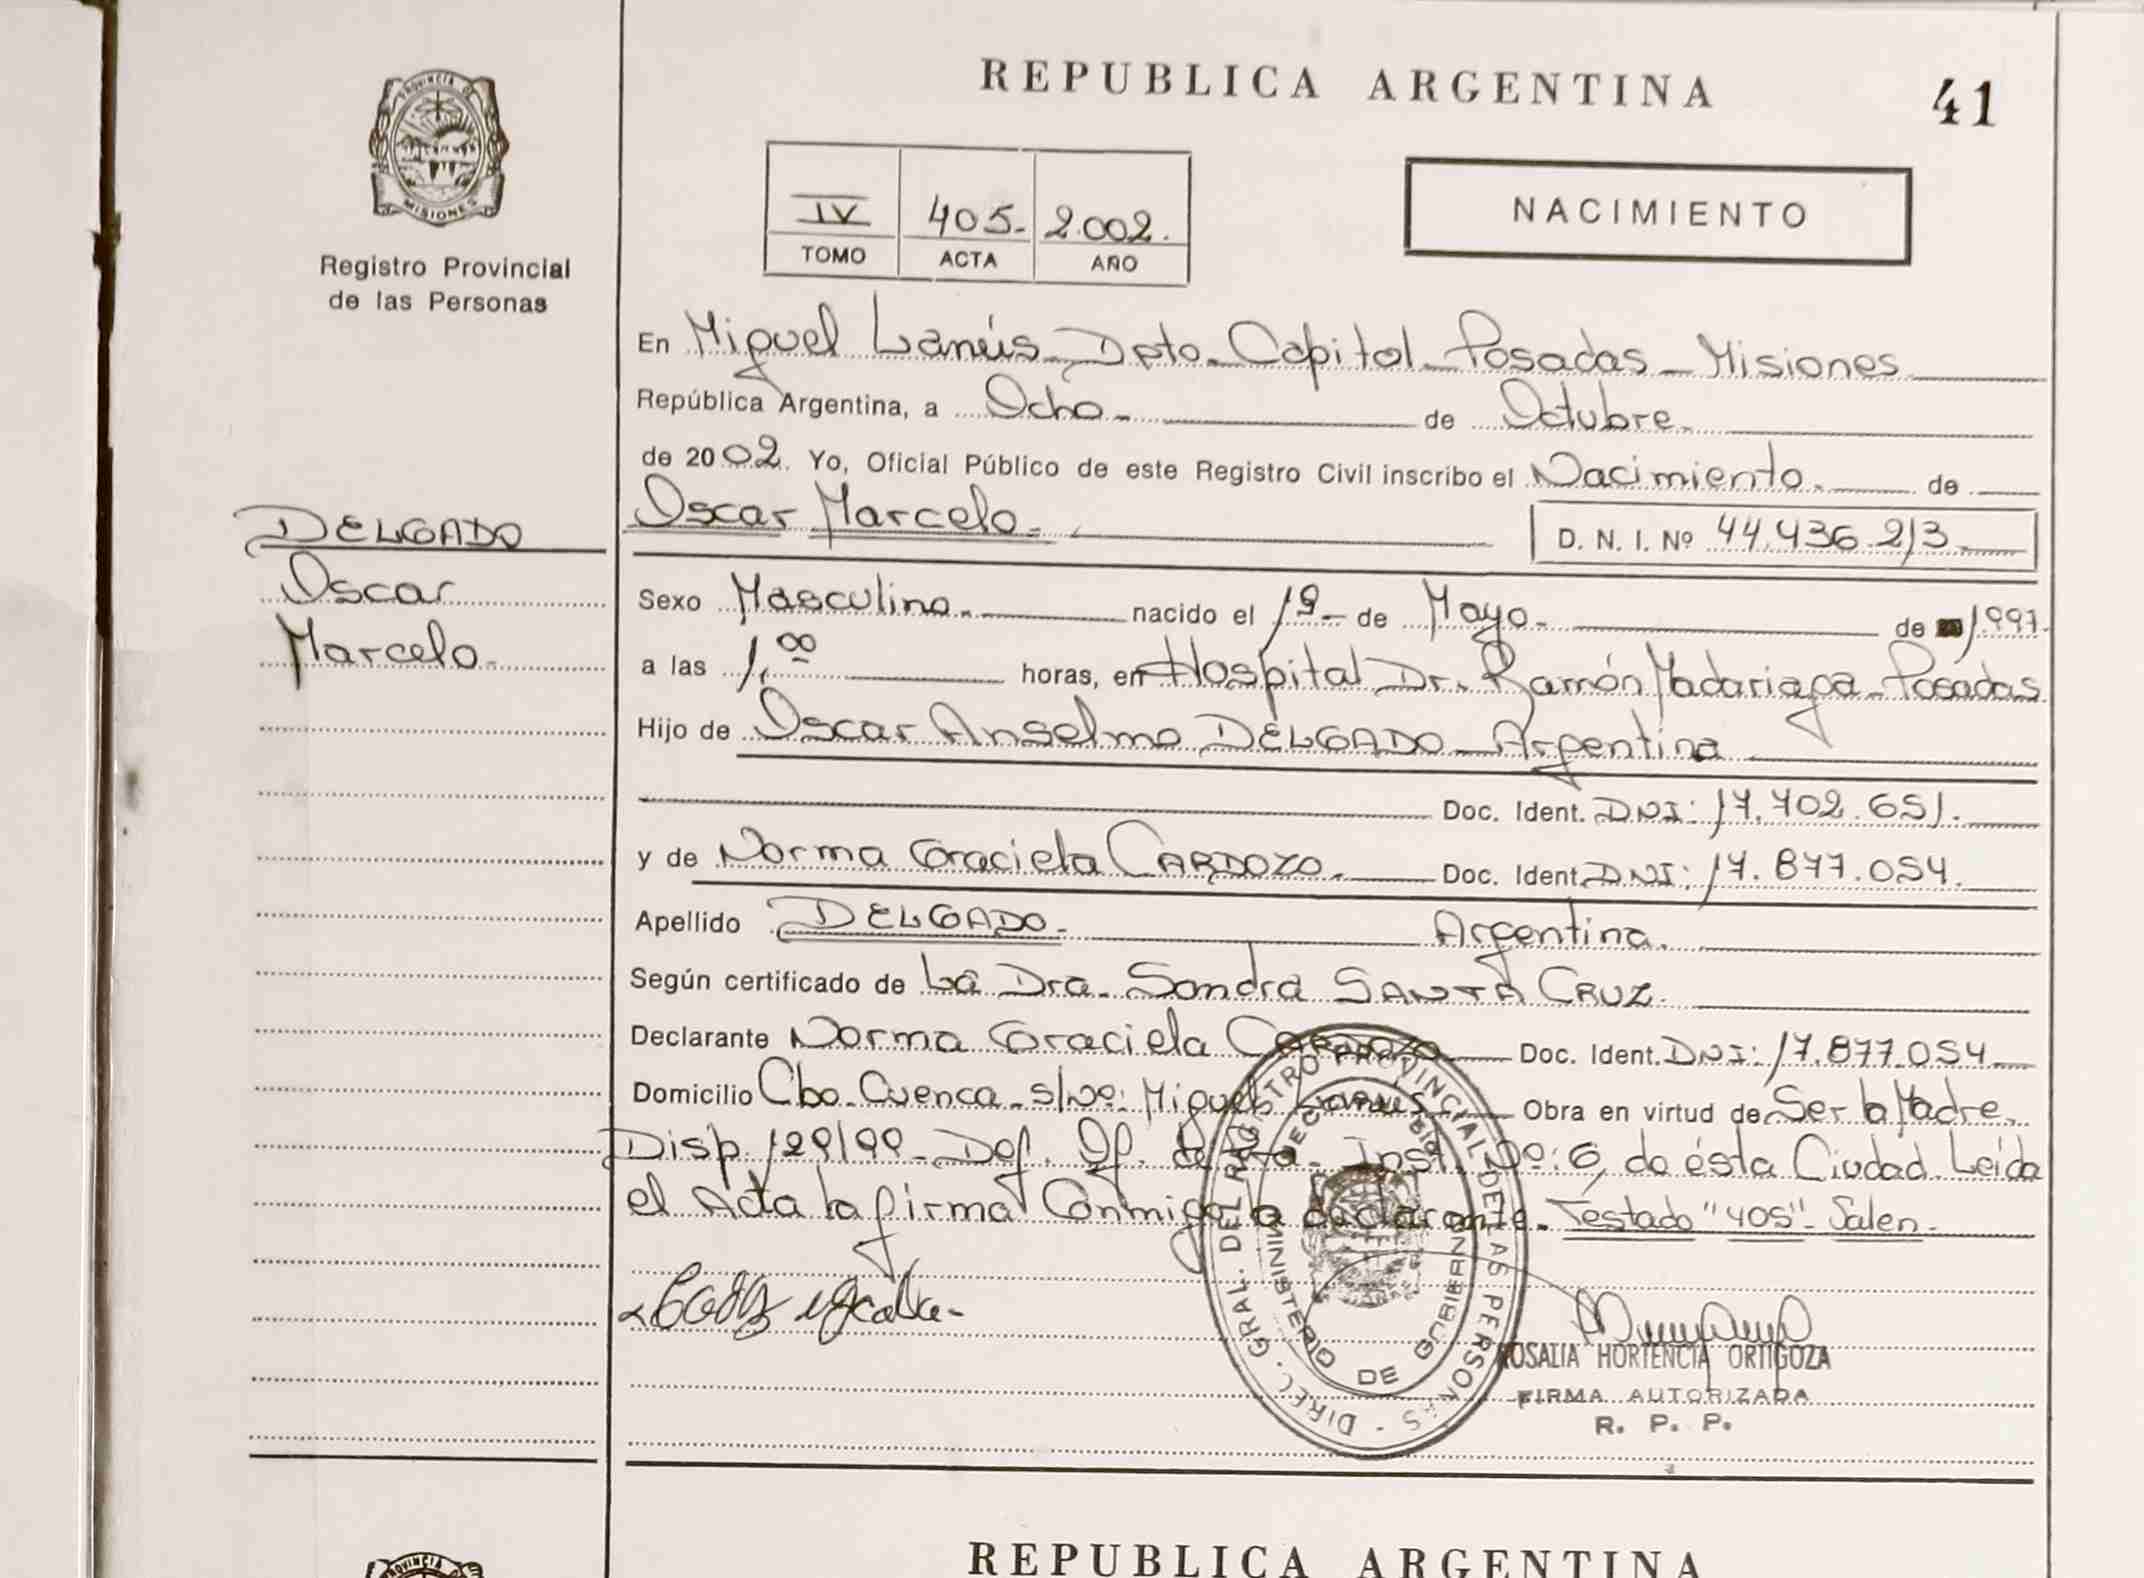 REPUBLICA ARGENTINA
41
PROVINCIA DE
MISIONES
Registro Provincial
de las Personas
IV 405- 2.002.
TOMO ACTA AÑO
NACIMIENTO
En Miguel Lanús - Dpto. Capital - Posadas - Misiones
República Argentina, a Ocho - de Octubre.
de 2002. Yo, Oficial Público de este Registro Civil inscribo el Nacimiento. de
Oscar Marcelo.
D. N. I. Nº 44.436.213.
DELGADO
Oscar
Marcelo.
Sexo Masculino. nacido el 19 - de Mayo. de 1.997.
a las 1,00 horas, en Hospital Dr. Ramón Madariaga - Posadas
Hijo de Oscar Anselmo DELGADO - Argentina
Doc. Ident. DNI: 17.702.651.
y de Norma Graciela CARDOZO. Doc. Ident. DNI: 17.877.054.
Apellido DELGADO. Argentina.
Según certificado de La Dra. Sandra SANTA CRUZ.
Declarante Norma Graciela CARDOZO Doc. Ident. DNI: 17.877.054
Domicilio Cbo. Cuenca - s/Nº: Miguel Lanús. Obra en virtud de Ser la Madre.
Disp. 129/99 - Def. Of. de Inst. Nº: 6, de ésta Ciudad. Leída
el Acta la firma Conmigo la declarante. Testado "405" - Salen.
DIREC. GRAL. DEL REGISTRO PROVINCIAL DE LAS PERSONAS
MINISTERIO DE GOBIERNO
ROSALIA HORTENCIA ORTIGOZA
FIRMA AUTORIZADA
R. P. P.
PROVINCIA
REPUBLICA ARGENTINA